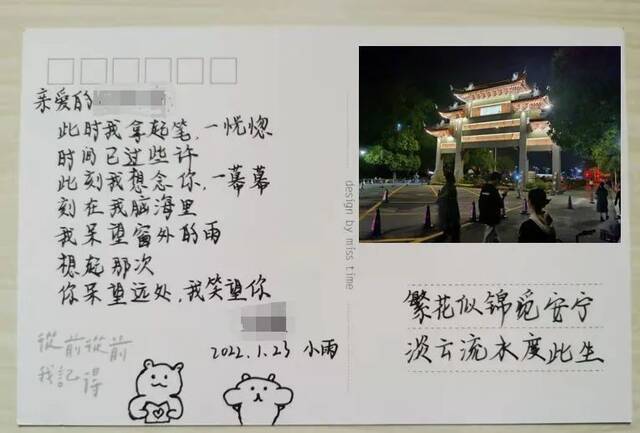 亲爱的
此时我拿起笔，一恍惚
时间已过些许
此刻我想念你，一幕幕
刻在我脑海里
我呆望窗外的雨
想起那次
你呆望远处，我笑望你
2022.1.23 小雨
從前從前
我記得
design by miss time
繁花似锦觅安宁
淡云流水度此生